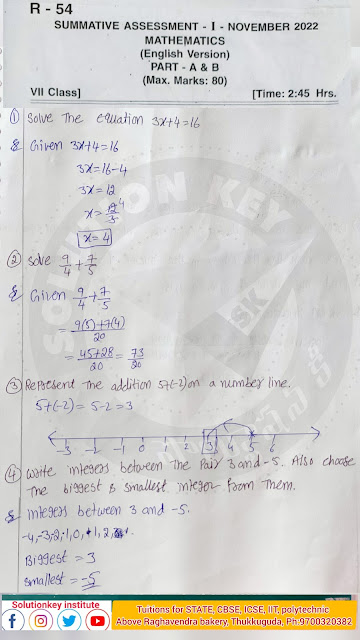 R - 54
SUMMATIVE ASSESSMENT - I - NOVEMBER 2022
MATHEMATICS
(English Version)
PART - A & B
(Max. Marks: 80)
VII Class] [Time: 2:45 Hrs.
① Solve The equation 3x+4=16
Given 3x+4=16
3x=16-4
3x=12
x=12/3 4
x=4
② Solve 9/4 + 7/5
Given 9/4 + 7/5
= 9(5)+7(4)/20
= 45+28/20 = 73/20
③ Represent The addition 5+(-2) on a number line.
5+(-2) = 5-2 = 3
-3 -2 -1 0 1 2 3 4 5 6
④ Write integers between The pair 3 and -5. Also choose
The biggest & smallest integer from Them.
Integers between 3 and -5.
-4,-3,-2,-1,0,+1,2
Biggest = 3
Smallest = -5
SOLUTION KEY
SK
Solutionkey institute
Tuitions for STATE, CBSE, ICSE, IIT, polytechnic
Above Raghavendra bakery, Thukkuguda, Ph:9700320382